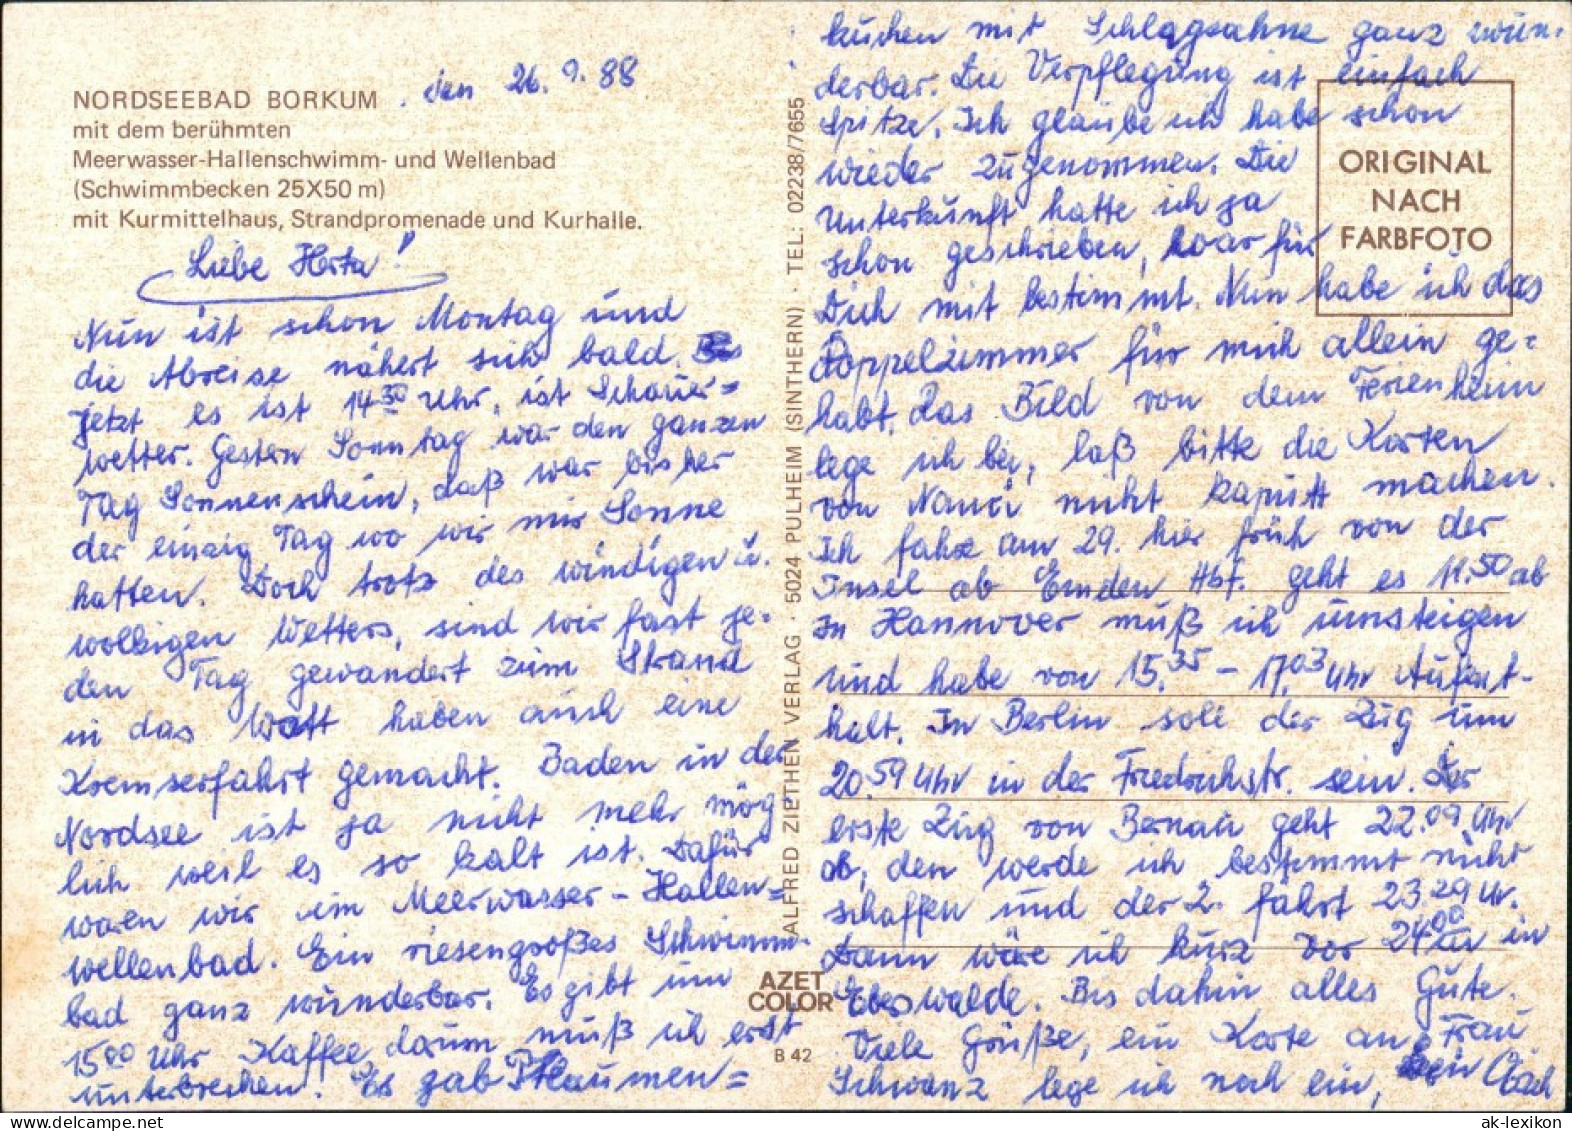 NORDSEEBAD BORKUM, den 26.9.88
mit dem berühmten
Meerwasser-Hallenschwimm- und Wellenbad
(Schwimmbecken 25X50 m)
mit Kurmittelhaus, Strandpromenade und Kurhalle.
Liebe Herta!
Nun ist schon Montag und
die Abreise nähert sich bald.
Jetzt es ist 14³⁰ Uhr, ist Schauer=
wetter. Gestern Sonntag war den ganzen
Tag Sonnenschein, daß war bisher
der einzig Tag wo wir nur Sonne
hatten. Doch trotz des windigen u.
wolkigen Wetters, sind wir fast je-
den Tag gewandert zum Strand
in das Watt haben auch eine
Kremserfahrt gemacht. Baden in der
Nordsee ist ja nicht mehr mög
lich weil es so kalt ist. Dafür
waren wir im Meerwasser-Hallen=
wellenbad. Ein riesengroßes Schwimm-
bad ganz wunderbar. Es gibt um
15⁰⁰ Uhr Kaffee, darum muß ich erst
unterbrechen. Es gab Pflaumen=
kuchen mit Schlagsahne ganz wun-
derbar. Die Verpflegung ist einfach
Spitze. Ich glaube ich habe schon
wieder zugenommen. Die
Unterkunft hatte ich ja
schon geschrieben, war für
Dich mit bestimmt. Nun habe ich das
Doppelzimmer für mich allein ge-
habt. Das Bild von dem Ferienheim
lege ich bei, laß bitte die Karten
von Nanci nicht kaputt machen.
Ich fahre am 29. hier früh von der
Insel ab Emden Hbf. geht es 11.50 ab
in Hannover muß ich umsteigen
und habe von 15.35 - 17.03 Uhr Aufent-
halt. In Berlin soll der Zug um
20.59 Uhr in der Friedrichstr. sein. Der
erste Zug von Bernau geht 22.09 Uhr
ab, den werde ich bestimmt nicht
schaffen und der 2. fährt 23.29 Ur.
Dann wäre ich kurz vor 24⁰⁰ Ur in
Eberswalde. Bis dahin alles Gute.
Viele Grüße, ein Karte an Frau
Schwanz lege ich noch ein,
ORIGINAL
NACH
FARBFOTO
ALFRED ZIETHEN VERLAG · 5024 PULHEIM (SINTHERN) · TEL: 02238/7655
AZET
COLOR
B 42
ak-lexikon